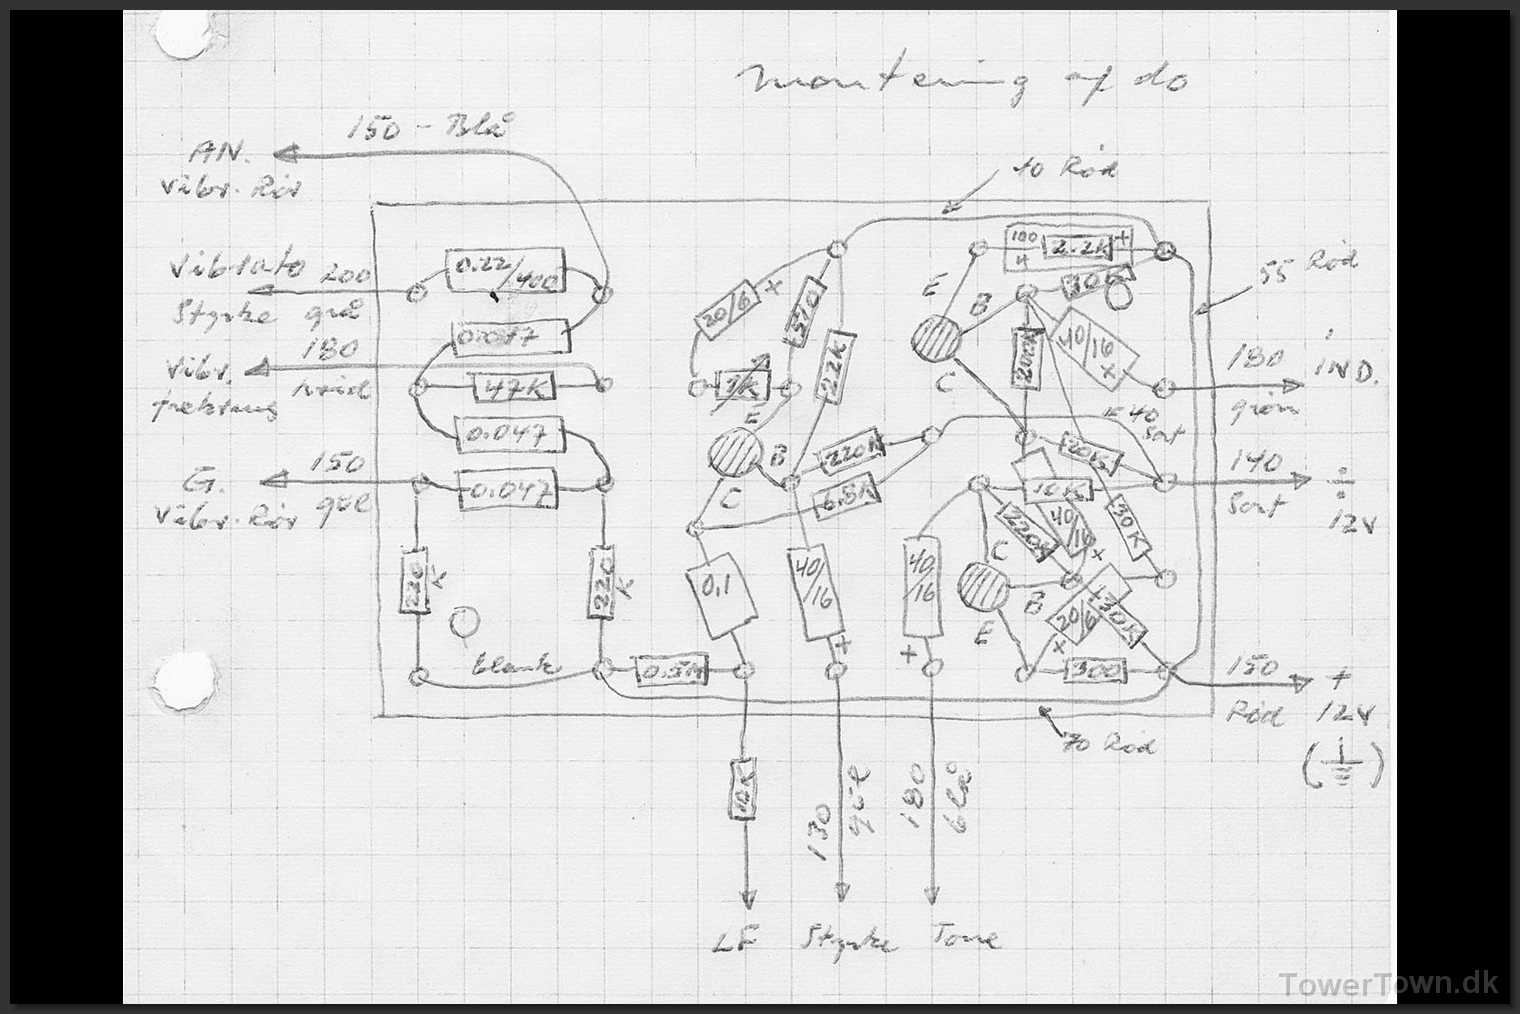 montering af do
150 - Blå
AN.
Vibr. Rör
10 Röd
Vibrato 200
Styrke grå
0.22/400
20/6 x
510
22K
E
B
C
100
4
2.2K
+
10K
55 Röd
0.047
180
Vibr.
47K
1K
200K
40/16
x
180
IND.
grön
0.047
E
B
C
220K
6.8K
= 40
Sort
20K
G.
150
gül
Vibr. Rör
0.047
10K
140
Sort
÷
12V
220K
40/16
x
30K
220
K
220
K
0,1
40/16
+
40/16
+
C
B
E
+30K
20/6
x
blank
0.5M
300
150
Röd
+
12V
70 Röd
10K
130
gül
180
blå
LF Styrke Tone
TowerTown.dk